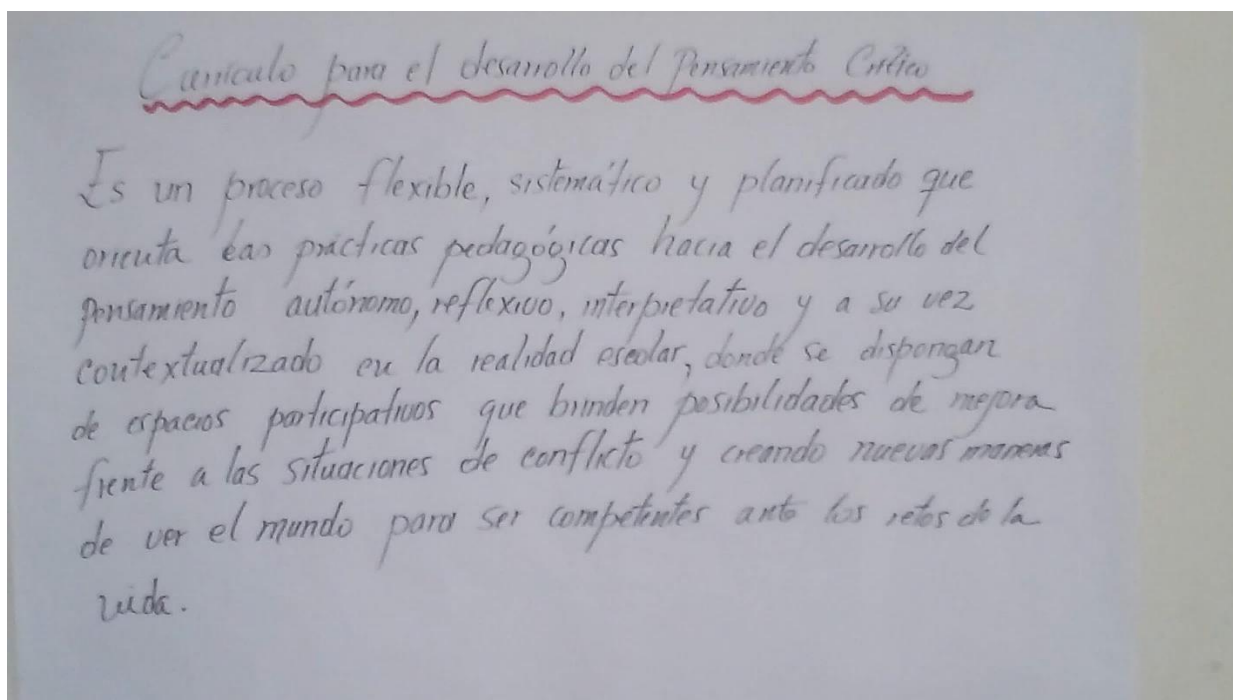 Curriculo para el desarrollo del Pensamiento Crítico
Es un proceso flexible, sistemático y planificado que
orienta las prácticas pedagógicas hacia el desarrollo del
Pensamiento autónomo, reflexivo, interpretativo y a su vez
contextualizado en la realidad escolar, donde se dispongan
de espacios participativos que brinden posibilidades de mejora
frente a las situaciones de conflicto y creando nuevas maneras
de ver el mundo para ser competentes ante los retos de la
vida.